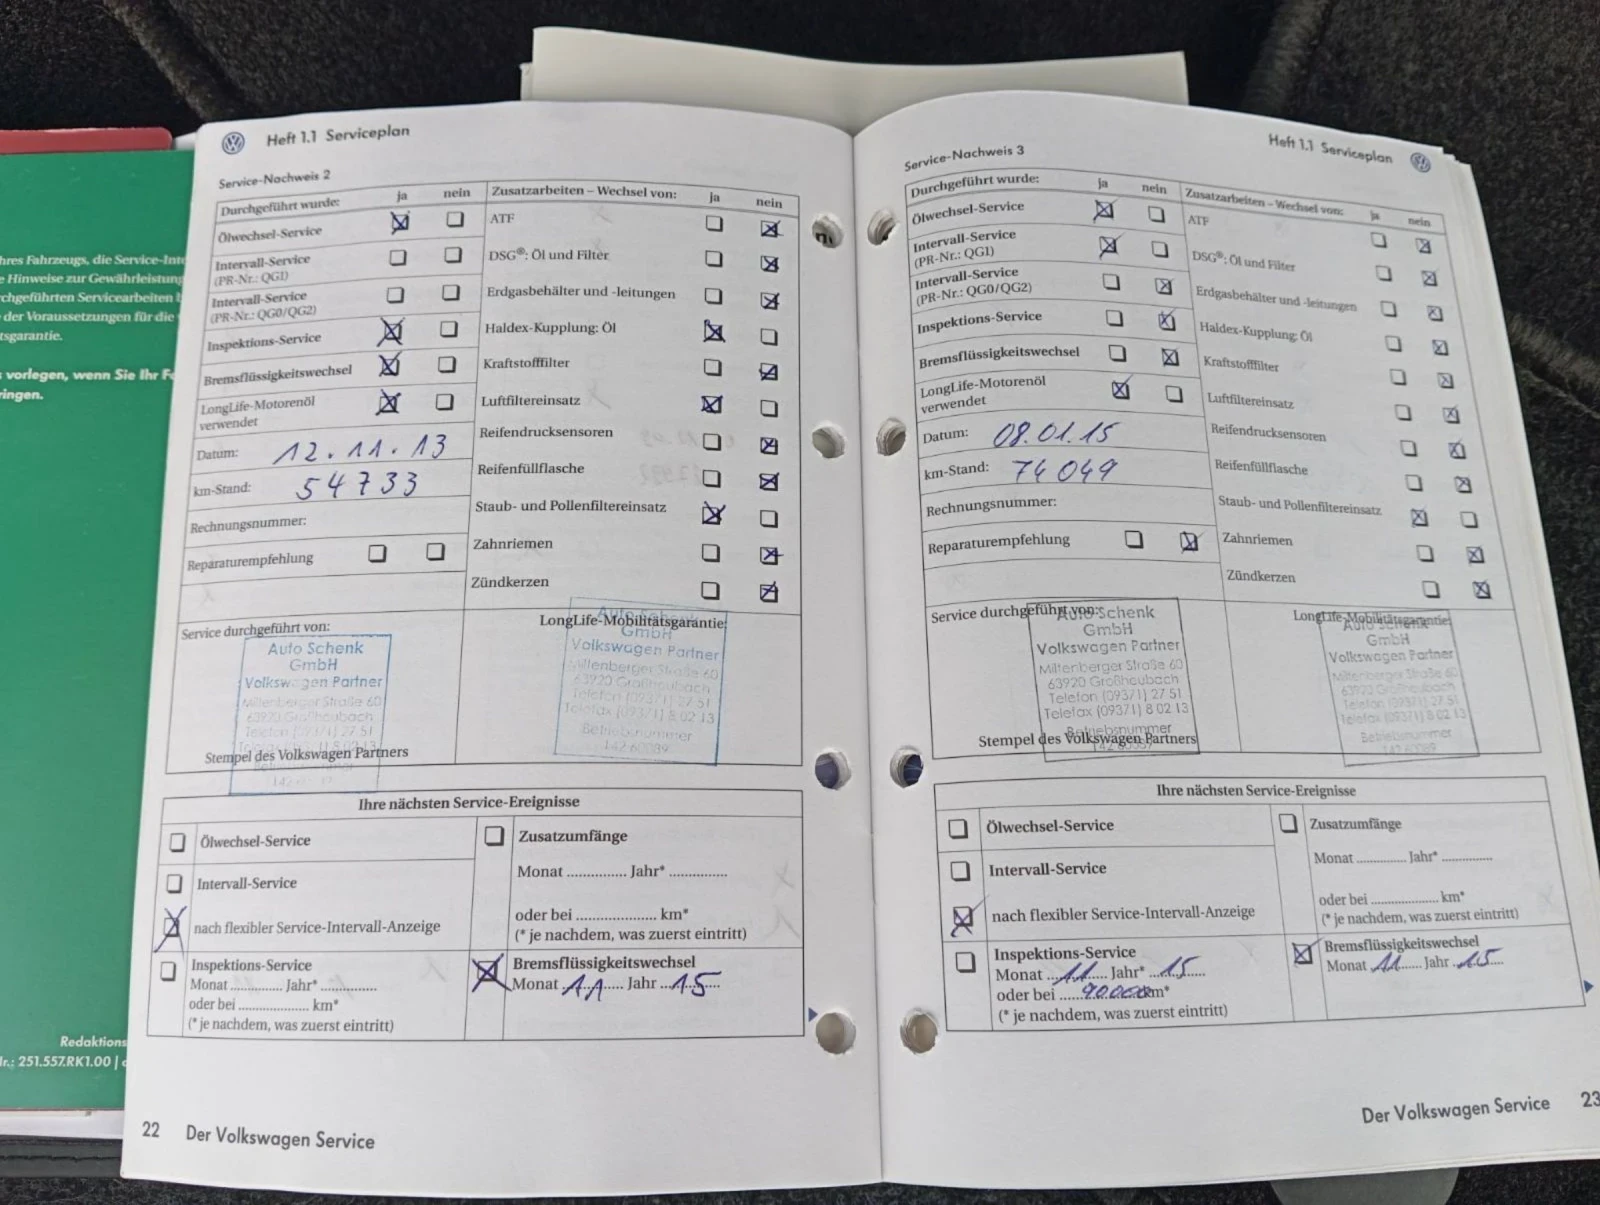 hres Fahrzeugs, die Service-Int
e Hinweise zur Gewährleistung
rchgeführten Servicearbeiten
der Voraussetzungen für die
tsgarantie.
s vorlegen, wenn Sie Ihr Fa
ringen.
Redaktions
Nr.: 251.557.RK1.00 |
Heft 1.1 Serviceplan
Service-Nachweis 2
Durchgeführt wurde: ja nein
Ölwechsel-Service
Intervall-Service
(PR-Nr.: QG1)
Intervall-Service
(PR-Nr.: QG0/QG2)
Inspektions-Service
Bremsflüssigkeitswechsel
LongLife-Motorenöl
verwendet
Datum: 12.11.13
km-Stand: 54733
Rechnungsnummer:
Reparaturempfehlung
Zusatzarbeiten – Wechsel von: ja nein
ATF
DSG®: Öl und Filter
Erdgasbehälter und -leitungen
Haldex-Kupplung: Öl
Kraftstofffilter
Luftfiltereinsatz
Reifendrucksensoren
Reifenfüllflasche
Staub- und Pollenfiltereinsatz
Zahnriemen
Zündkerzen
Service durchgeführt von:
Auto Schenk
GmbH
Volkswagen Partner
Miltenberger Straße 60
63920 Großheubach
Telefon (09371) 27 51
Stempel des Volkswagen Partners
LongLife-Mobilitätsgarantie:
Auto Schenk
GmbH
Volkswagen Partner
Miltenberger Straße 60
63920 Großheubach
Telefon (09371) 27 51
Telefax (09371) 8 02 13
Betriebsnummer
142 60089
Ihre nächsten Service-Ereignisse
Ölwechsel-Service
Intervall-Service
nach flexibler Service-Intervall-Anzeige
Inspektions-Service
Monat ............ Jahr* ............
oder bei .................. km*
(* je nachdem, was zuerst eintritt)
Zusatzumfänge
Monat ............ Jahr* ............
oder bei .................. km*
(* je nachdem, was zuerst eintritt)
Bremsflüssigkeitswechsel
Monat 11 Jahr 15
22 Der Volkswagen Service
Heft 1.1 Serviceplan
Service-Nachweis 3
Durchgeführt wurde: ja nein
Ölwechsel-Service
Intervall-Service
(PR-Nr.: QG1)
Intervall-Service
(PR-Nr.: QG0/QG2)
Inspektions-Service
Bremsflüssigkeitswechsel
LongLife-Motorenöl
verwendet
Datum: 08.01.15
km-Stand: 74049
Rechnungsnummer:
Reparaturempfehlung
Zusatzarbeiten – Wechsel von: ja nein
ATF
DSG®: Öl und Filter
Erdgasbehälter und -leitungen
Haldex-Kupplung: Öl
Kraftstofffilter
Luftfiltereinsatz
Reifendrucksensoren
Reifenfüllflasche
Staub- und Pollenfiltereinsatz
Zahnriemen
Zündkerzen
Service durchgeführt von:
Auto Schenk
GmbH
Volkswagen Partner
Miltenberger Straße 60
63920 Großheubach
Telefon (09371) 27 51
Telefax (09371) 8 02 13
Betriebsnummer
142 60089
Stempel des Volkswagen Partners
LongLife-Mobilitätsgarantie:
Auto Schenk
GmbH
Volkswagen Partner
Miltenberger Straße 60
63920 Großheubach
Telefon (09371) 27 51
Telefax (09371) 8 02 13
Betriebsnummer
142 60089
Ihre nächsten Service-Ereignisse
Ölwechsel-Service
Intervall-Service
nach flexibler Service-Intervall-Anzeige
Inspektions-Service
Monat 11 Jahr* 15
oder bei 90000 km*
(* je nachdem, was zuerst eintritt)
Zusatzumfänge
Monat ............ Jahr* ............
oder bei .................. km*
(* je nachdem, was zuerst eintritt)
Bremsflüssigkeitswechsel
Monat 11 Jahr 15
Der Volkswagen Service 23